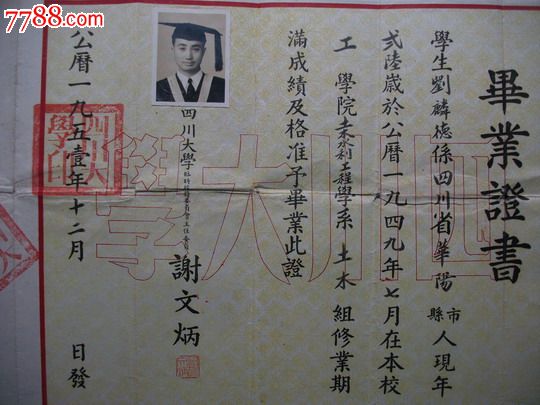 7788.com
畢業證書
學生劉麟德係四川省華陽縣市人現年
貳陸歲於公曆一九四九年七月在本校
工學院土木水利工程學系土木組修業期
滿成績及格准予畢業此證
四川大學臨時校務委員會主任委員謝文炳
公曆一九五壹年十二月日發
四川大學
四川大學印